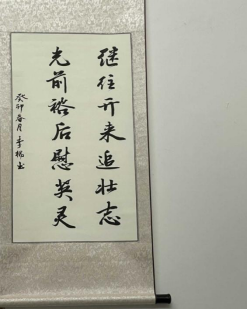 继往开来追壮志
光前裕后慰英灵
癸卯春月李杨书